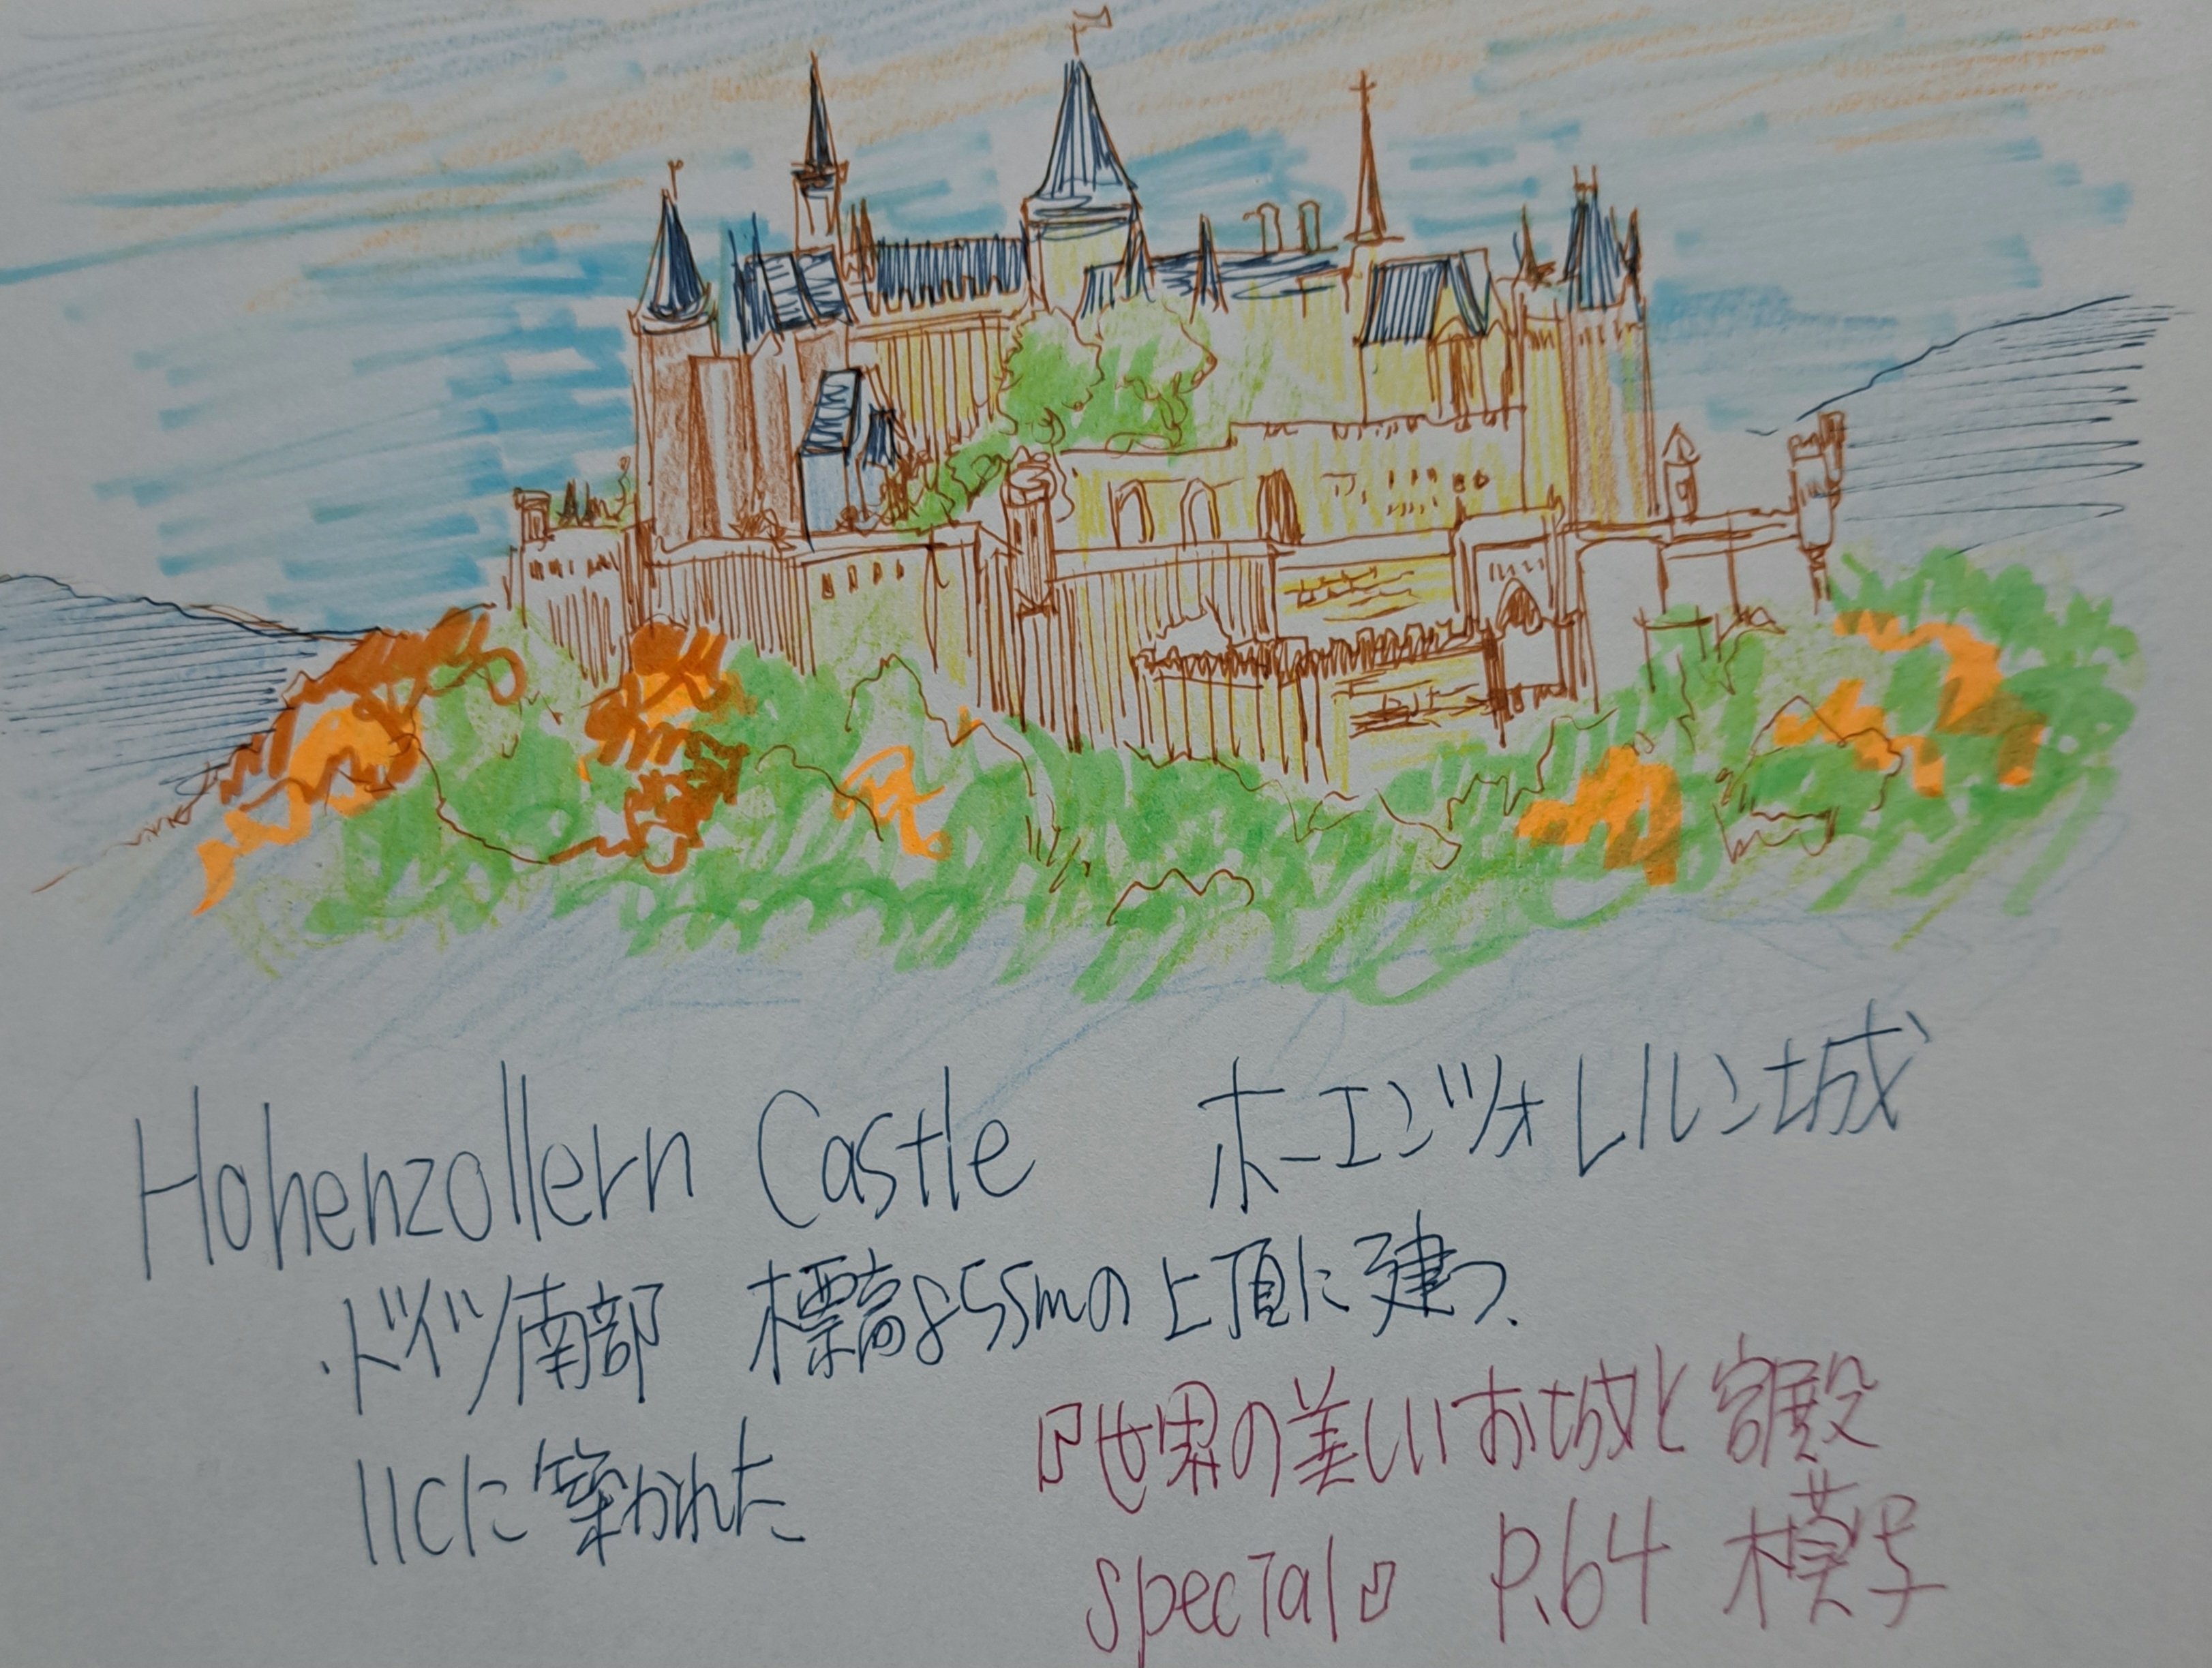 Hohenzollern Castle ホーエンツォレルン城
・ドイツ南部 標高855mの上頂に建つ、
11Cに築かれた
『世界の美しいお城と宮殿
special』 P.64 模写